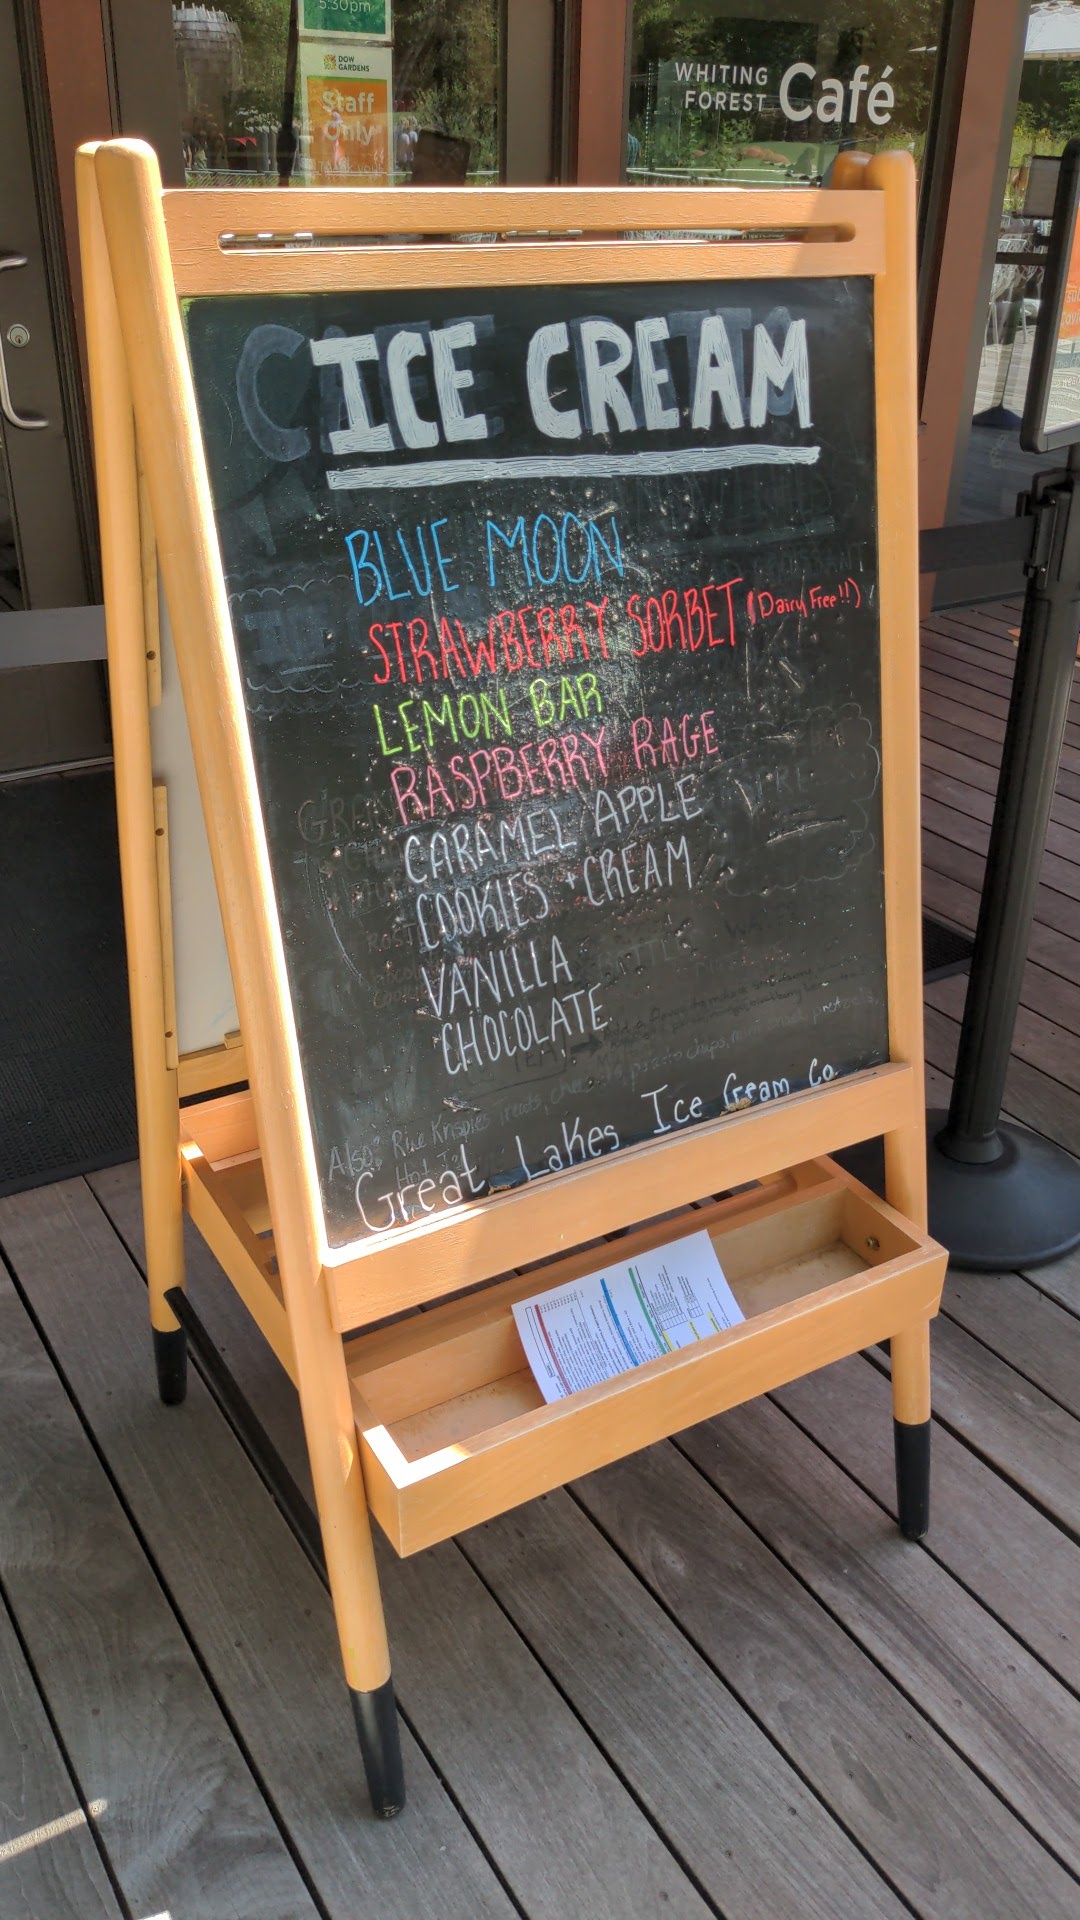 5:30pm
DOW
GARDENS
Staff
Only
WHITING
FOREST Café
ICE CREAM
BLUE MOON
STRAWBERRY SORBET (Dairy Free!!)
LEMON BAR
RASPBERRY RAGE
CARAMEL APPLE
COOKIES + CREAM
VANILLA
CHOCOLATE
Also: Rice Krispies Treats,
Great Lakes Ice Cream Co.